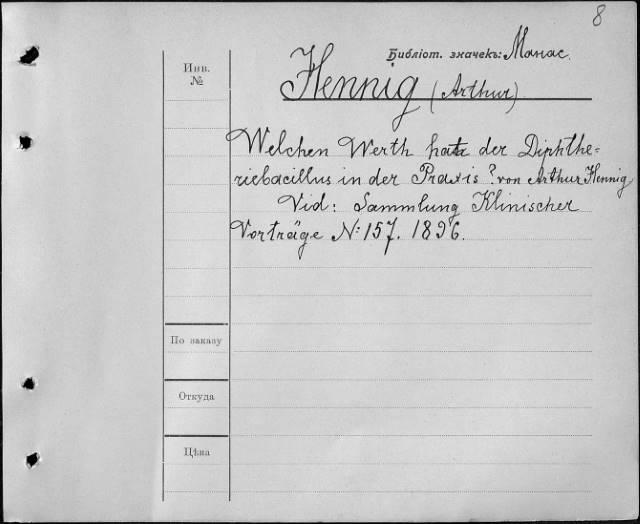 8
Библіот. значекъ: Манас.
Инв.
№
Hennig (Arthur)
Welchen Werth hat der Diphthe=
riebacillus in der Praxis? von Arthur Hennig
Vid: Sammlung Klinischer
Vorträge N: 157. 1896.
По заказу
Откуда
Цѣна